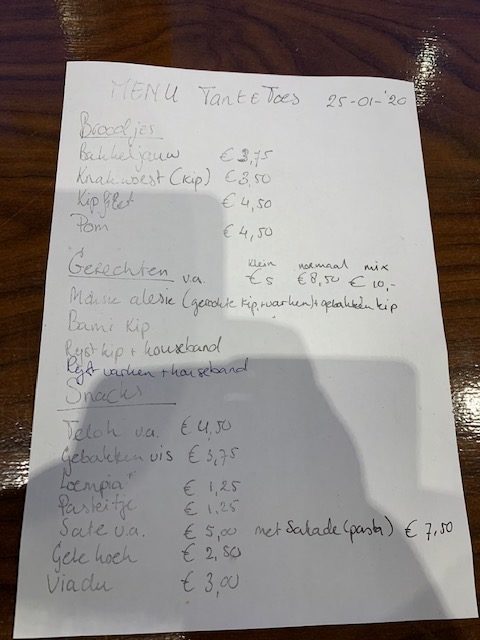 MENU Tante Toes 25-01-'20
Broodjes
Bakkeljauw € 3,75
Knakworst (kip) € 3,50
Kipfilet € 4,50
Pom € 4,50
Gerechten v.a. klein € 5 normaal € 8,50 mix € 10,-
Moksie alesie (gerookte kip, + varken) + gebakken kip
Bami Kip
Ryst kip + kouseband
Ryst varken + kouseband
Snacks
Teloh v.a. € 4,50
Gebakken vis € 3,75
Loempia € 1,25
Pasteitje € 1,25
Sate v.a. € 5,00 met Salade (pasta) € 7,50
Gele koek € 2,50
Viadu € 3,00